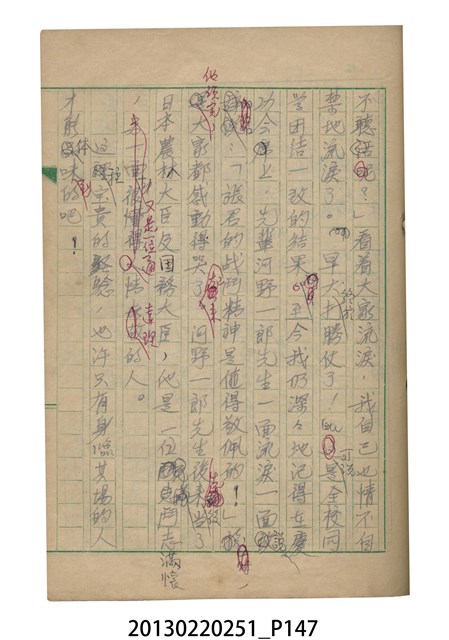 不聽話呢？」看着大家流淚，我自己也情不自
禁地流淚了。「早大打勝仗了！」終於可說是全校同
學団結一致的結果。至今我仍深々地記得在慶
功會上，先輩河野一郎先生一面流淚一面說
：「張君的战鬥精神是值得敬佩的！」
他說完，大家都感動得哭了。河野一郎先生後來當了
日本農林大臣及国務大臣，他是一位鬥志滿懷
，又是一位通情達理的人。
這種宝貴的經驗，也許只有身臨其場的人
才能体味的吧！
20130220251_P147